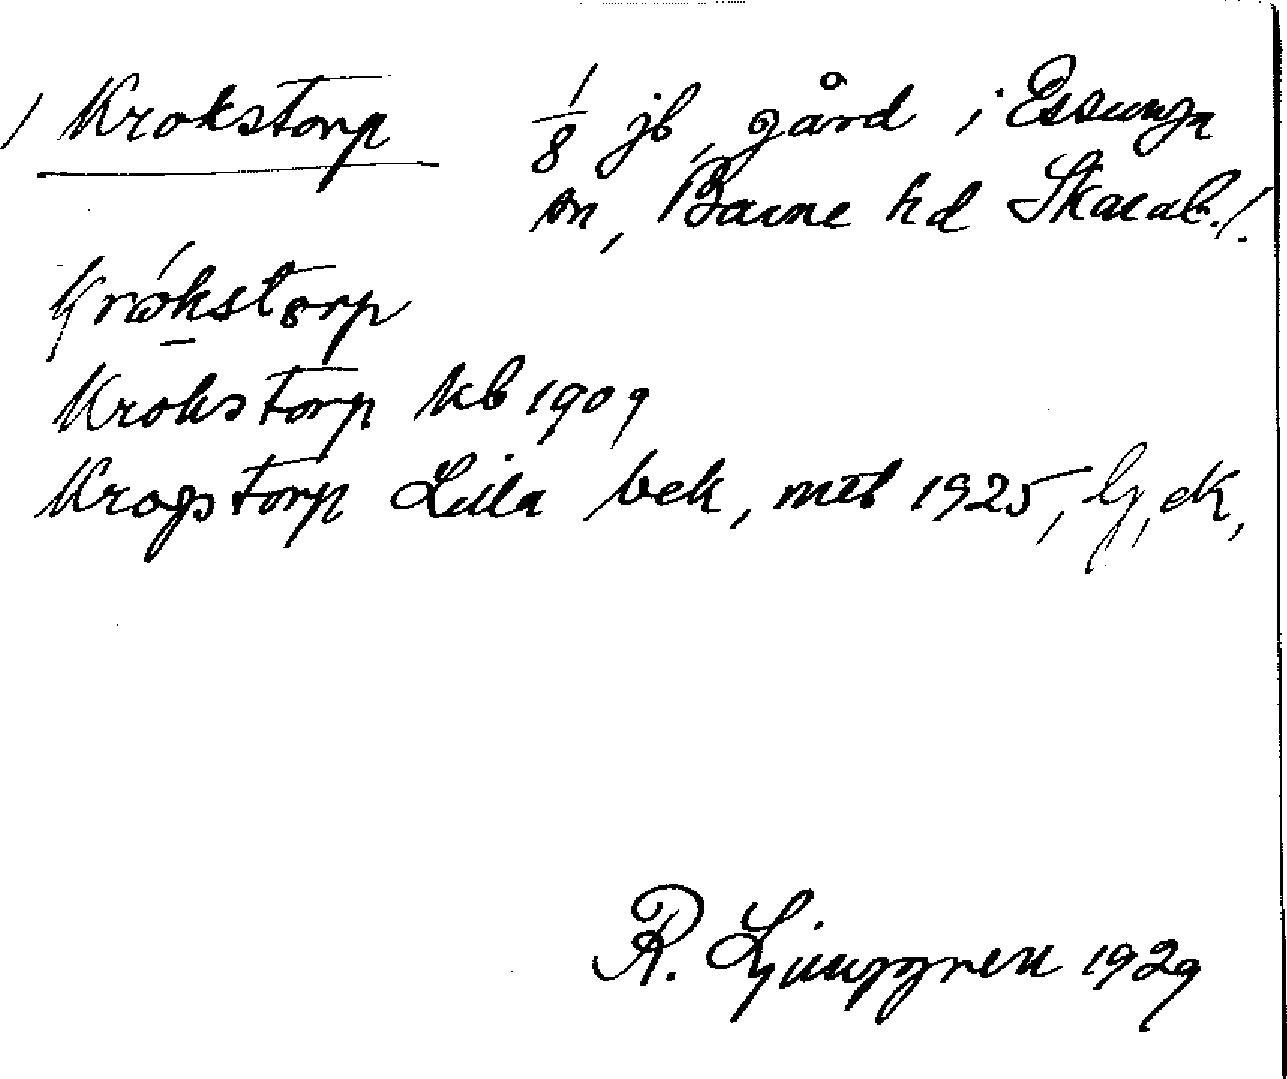 / Krokstorp 1/8 jb, gård i Essunga
sn, Barne hd Skarab. l.
krókstorp
Krokstorp kb 1909
Krogstorp Lilla bek, mtl 1925,
R. Ljunggren 1929